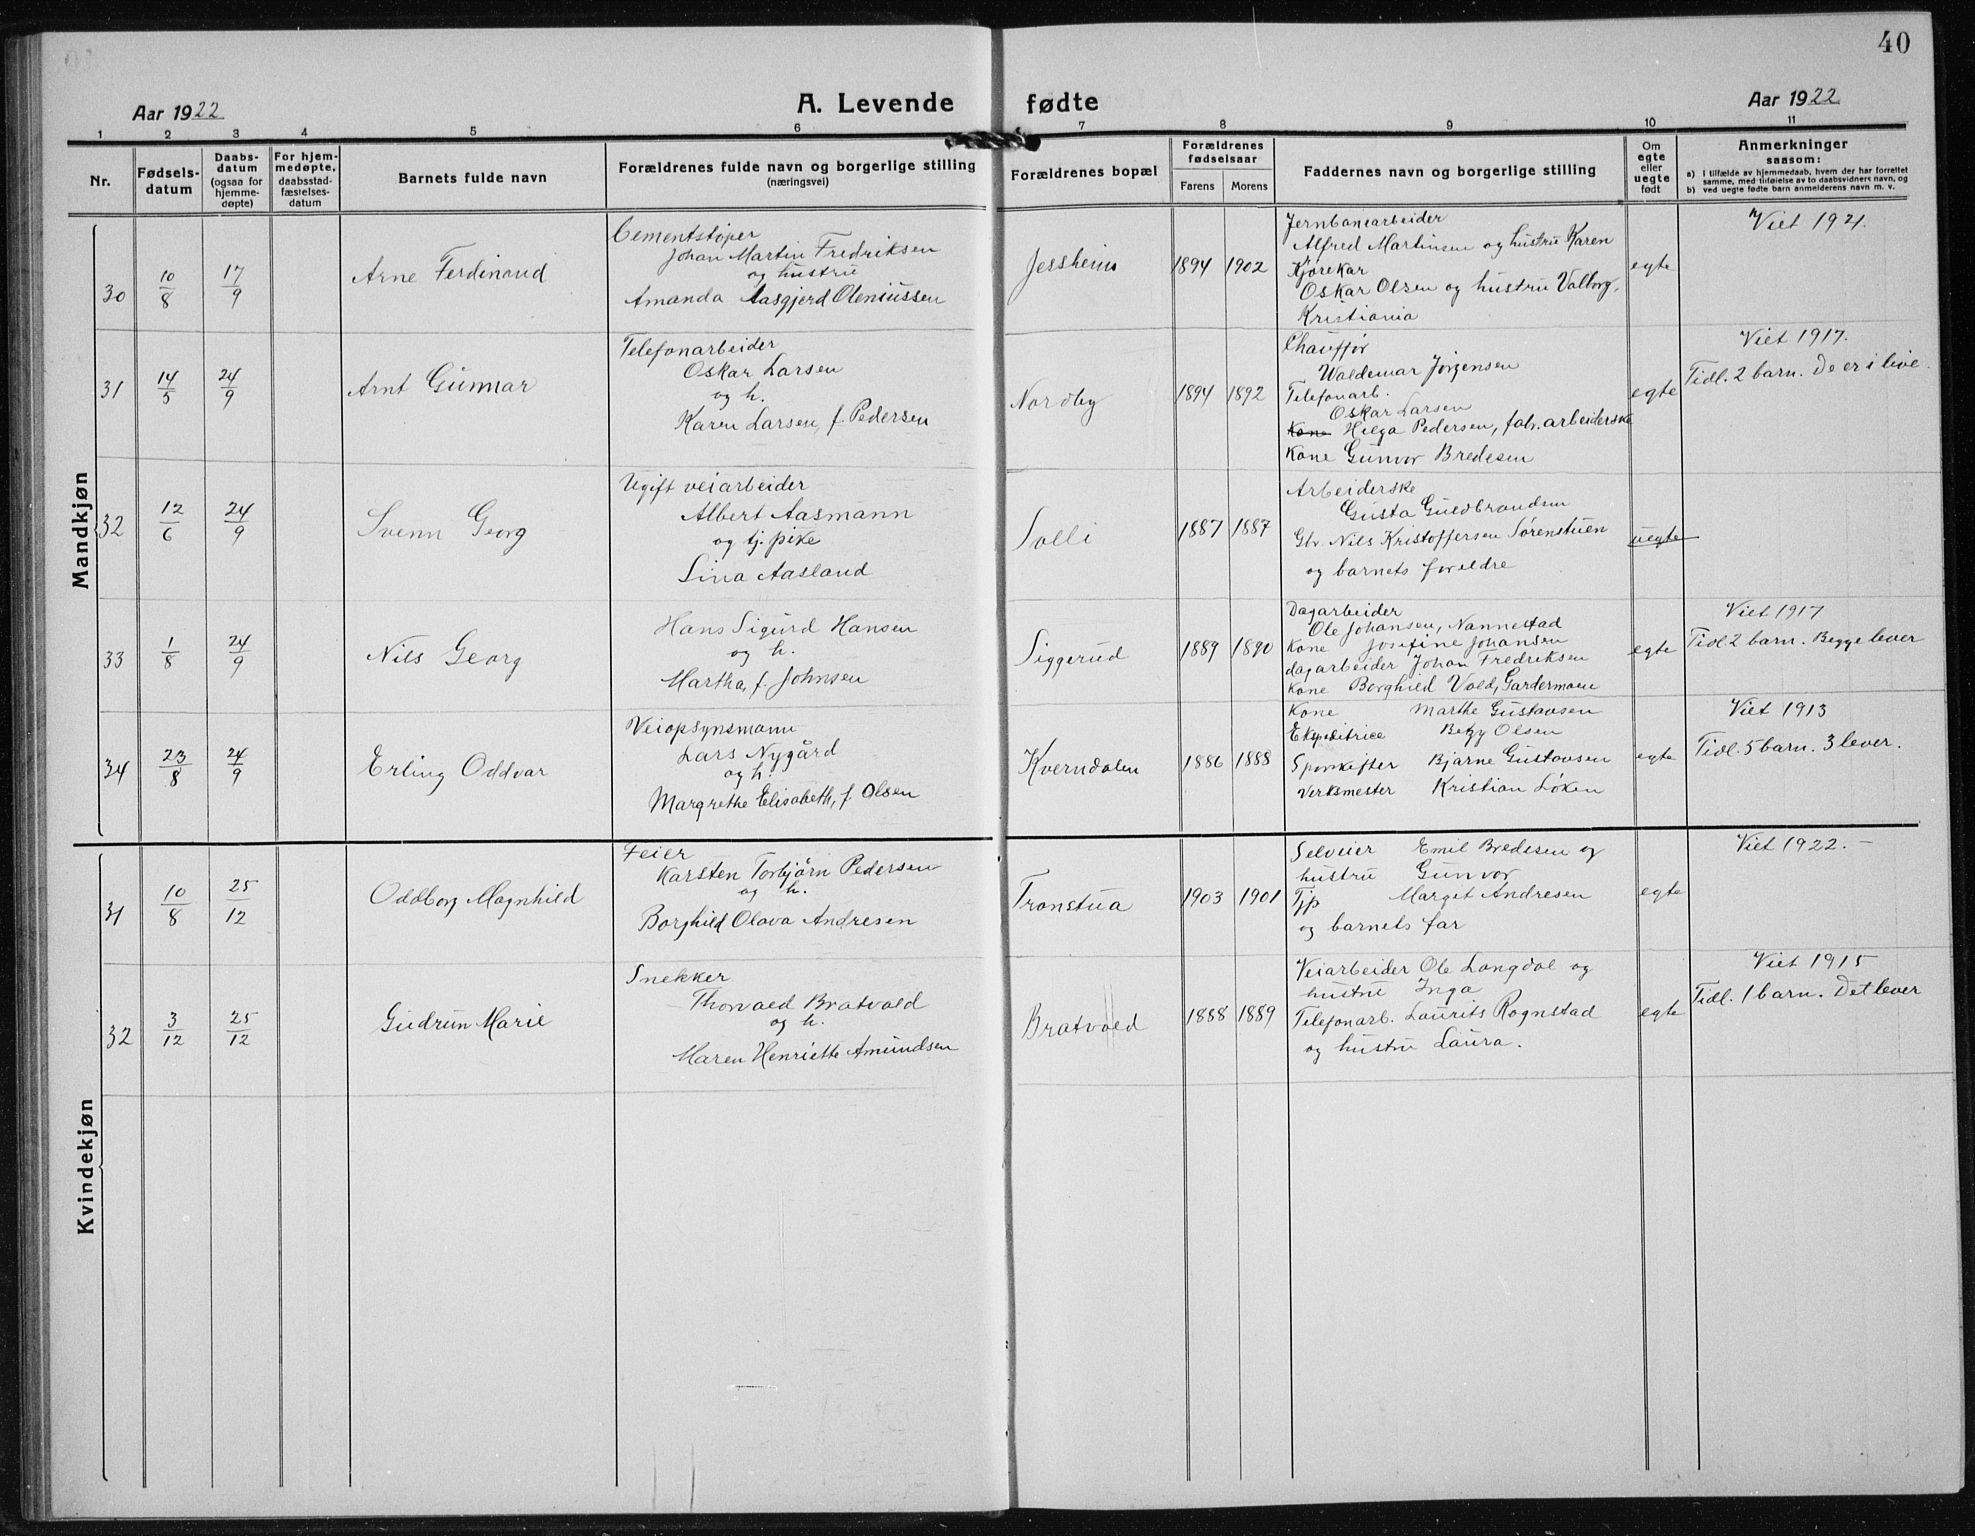 40
Aar 1922
A. Levende fødte
Aar 1922
1 2 3 4 5 6 7 8 9 10 11
Nr.
Fødsels-
datum
Daabs-
datum
(ogsaa for
hjemme-
døpte)
For hjem-
medøpte,
daabsstad-
fæstelses-
datum
Barnets fulde navn
Forældrenes fulde navn og borgerlige stilling
(næringsvei)
Forældrenes bopæl
Forældrenes
fødselsaar
Farens Morens
Faddernes navn og borgerlige stilling
Om
egte
eller
uegte
født
Anmerkninger
saasom:
a) i tilfælde av hjemmedaab, hvem der har forrettet
samme, med tilføielse av to daabsvidners navn, og
b) ved uegte fødte barn anmelderens navn m. v.
Mandkjøn
30
10/8
17/9
Arne Ferdinand
Cementstøper
Johan Martin Fredriksen
og hustru
Amanda Aasgjerd Oleniussen
Jessheim
1894 1902
Jernbanearbeider
Alfred Martinsen og hustru Karen
Kjørekar
Oskar Olsen og hustru Valborg,
Kristiania
egte
Viet 1921.
31
14/5
24/9
Arnt Gunnar
Telefonarbeider
Oskar Larsen
og h.
Karen Larsen, f. Pedersen
Nordby
1894 1892
Chauffør
Waldemar Jørgensen
Telefonarb.
Oskar Larsen
Kone Helga Pedersen, fab. arbeiderske
Kone Gunvor Bredesen
egte
Viet 1917.
Tidl. 2 barn. De er i live.
32
12/6
24/9
Svenn Georg
Ugift veiarbeider
Albert Aasmann
og tj. pike
Lina Aasland
Solli
1887 1887
Arbeiderske
Gusta Guldbrandsen
Gbr. Nils Kristoffersen Sørenstuen
og barnets foreldre
uegte
33
1/8
24/9
Nils Georg
Hans Sigurd Hansen
og h.
Martha, f. Johnsen
Siggerud
1889 1890
Dagarbeider
Ole Johansen, Nannestad
Kone Josefine Johansen
dagarbeider Johan Fredriksen
Kone Borghild Vold, Gardermoen
egte
Viet 1917
Tidl. 2 barn. Begge lever
34
23/8
24/9
Erling Oddvar
Veiopsynsmann
Lars Nygård
og h.
Margrethe Elisabeth, f. Olsen
Kverndalen
1886 1888
Kone Marthe Gustavsen
Ekspeditrice Betzy Olsen
Sporskifter Bjarne Gustavsen
Verksmester Kristian Løken
egte
Viet 1913
Tidl. 5 barn. 3 lever.
Kvindekjøn
31
10/8
25/12
Oddborg Magnhild
Feier
Karsten Torbjørn Pedersen
og h.
Borghild Olava Andresen
Tronstua
1903 1901
Selveier Emil Bredesen og
hustru Gunvor
Tjp Marget Andresen
og barnets far
egte
Viet 1922. –
32
3/12
25/12
Gudrun Marie
Snekker
Thorvald Bratvold
og h.
Maren Henriette Amundsen
Bratvold
1888 1889
Veiarbeider Ole Langdal og
hustru Inga
Telefonarb. Laurits Rognstad
og hustru Laura.
egte
Viet 1915
Tidl. 1 barn. Det lever